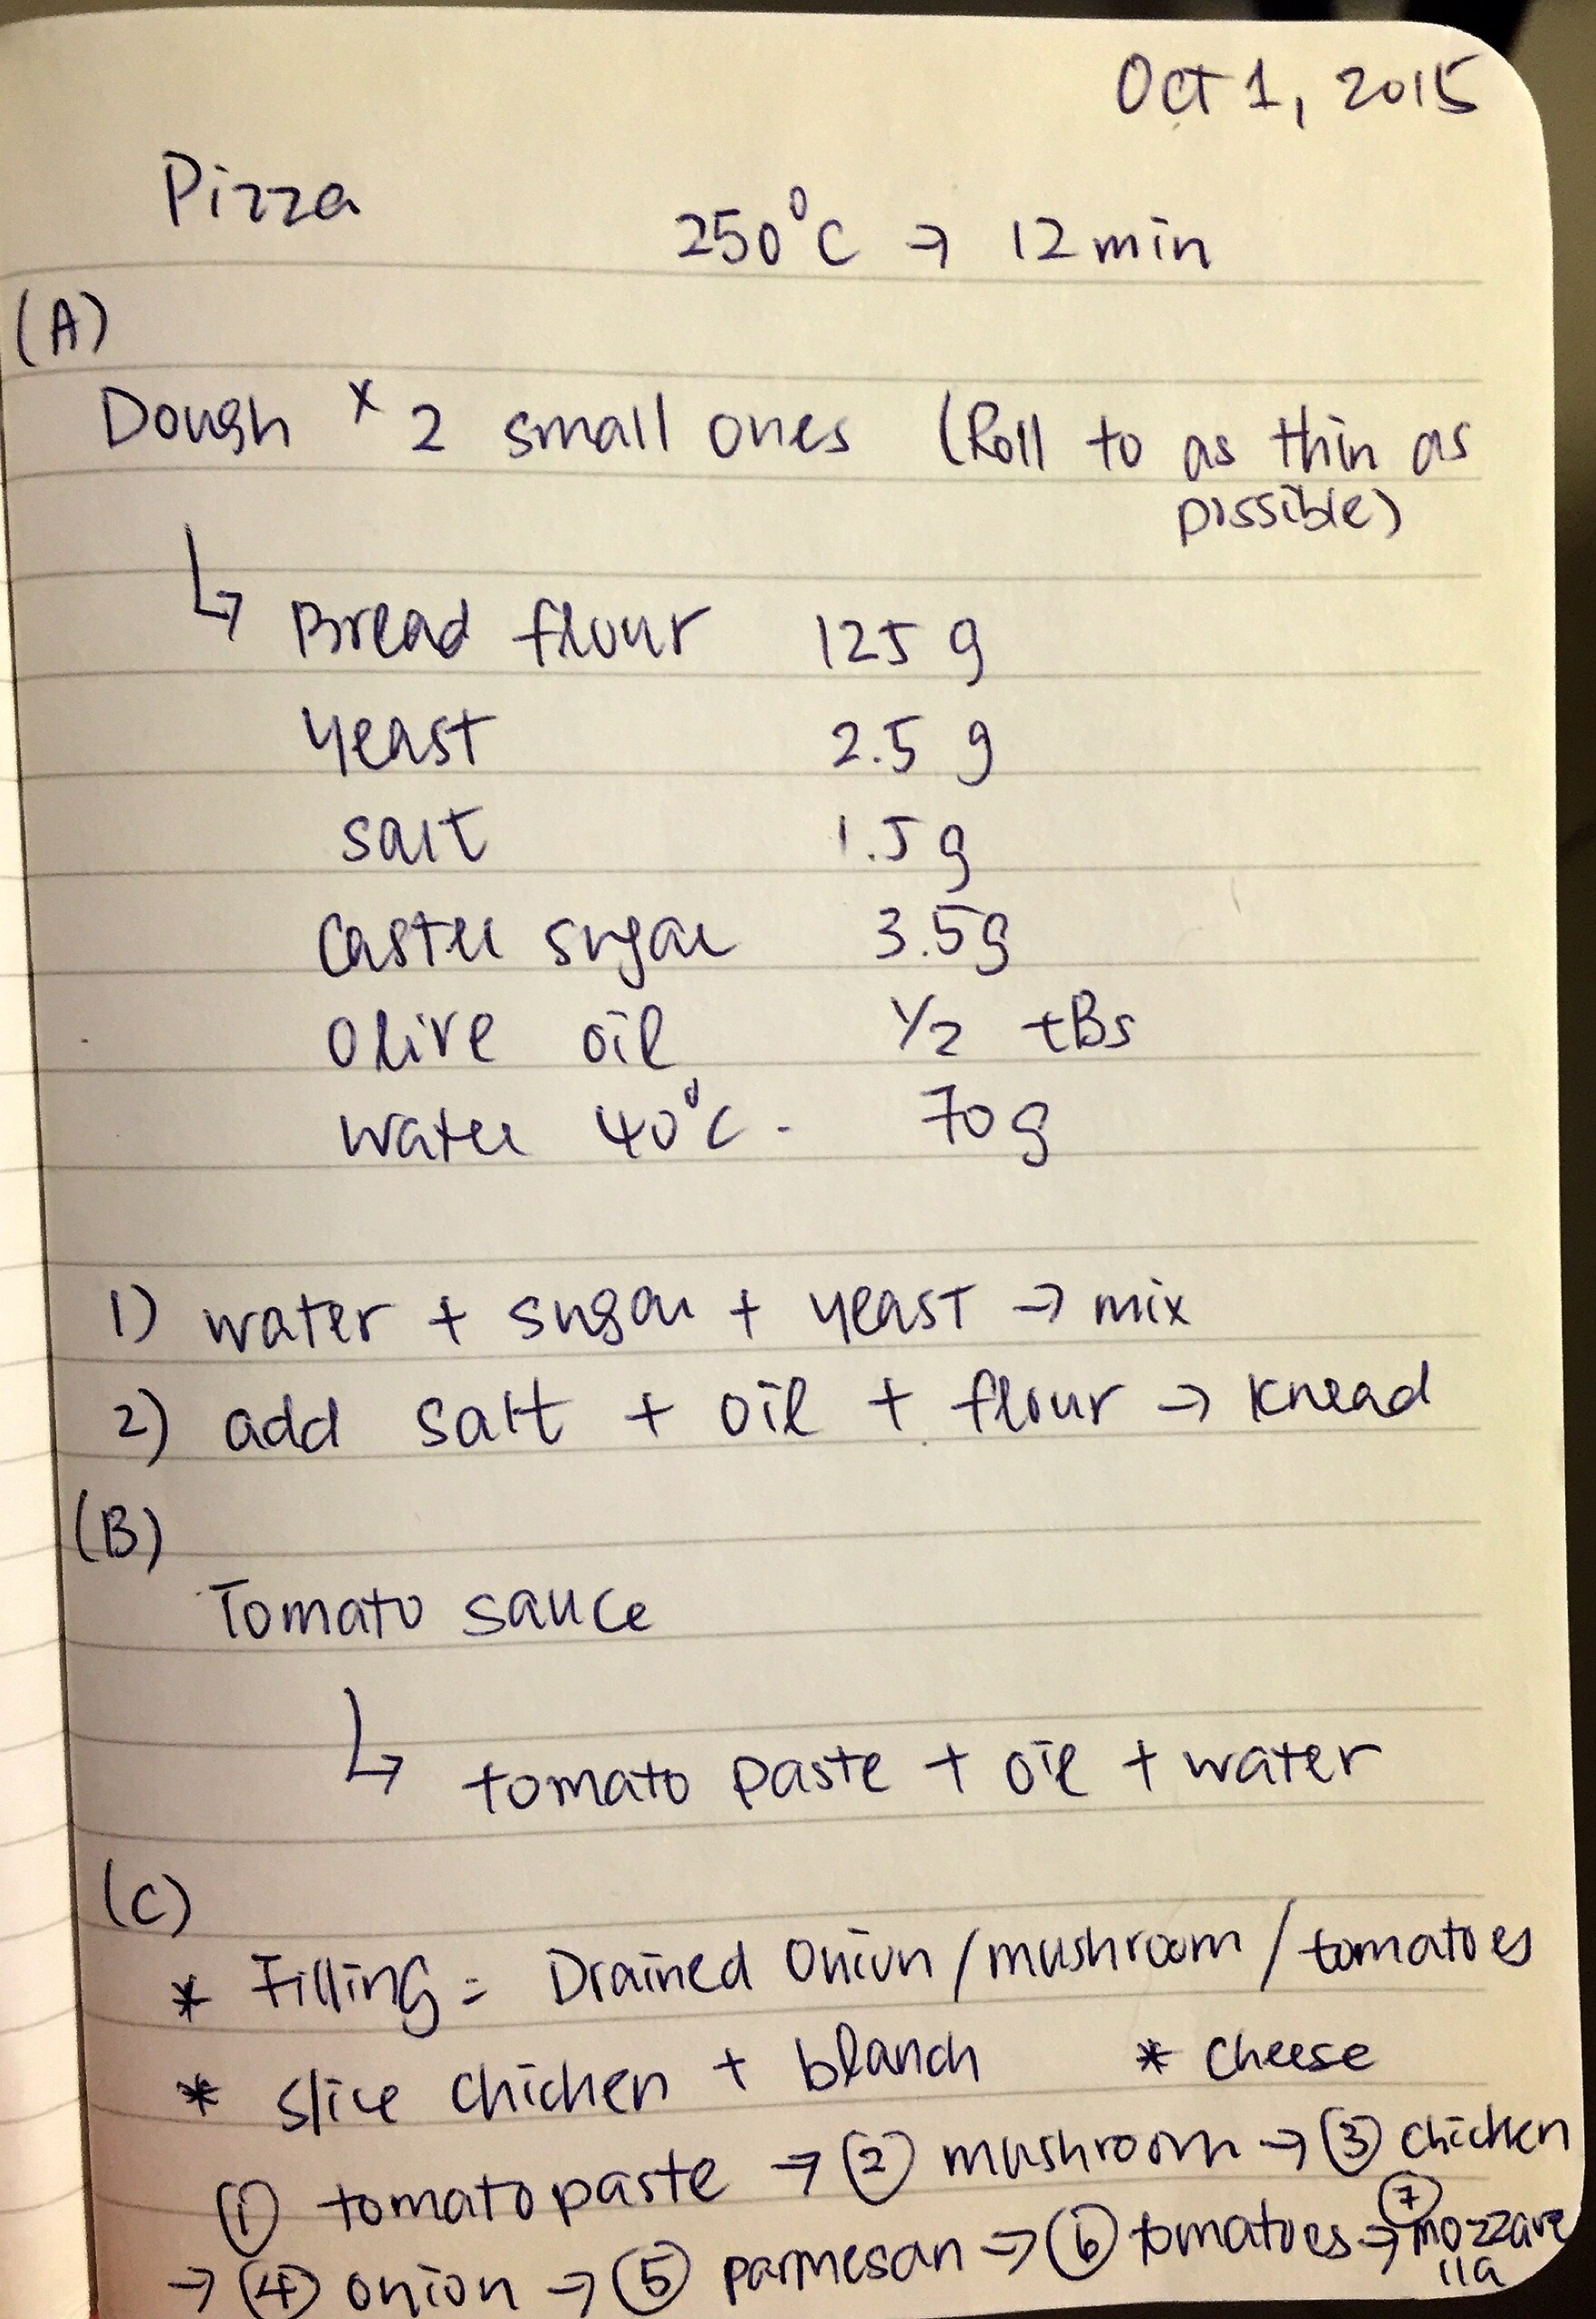 Oct 1, 2015
Pizza
250°C → 12 min
(A)
Dough x 2 small ones (Roll to as thin as
possible)
↳ Bread flour 125 g
yeast 2.5 g
salt 1.5 g
Caster sugar 3.5g
Olive oil 1/2 tBs
water 40°C. 70g
1) water + sugar + yeast → mix
2) add salt + oil + flour → knead
(B)
Tomato sauce
↳ tomato paste + oil + water
(C)
* Filling = Drained Onion / mushroom / tomatoes
* slice chicken + blanch * cheese
① tomato paste → ② mushroom → ③ chicken
→ ④ onion → ⑤ parmesan → ⑥ tomatoes → ⑦ mozzare
lla